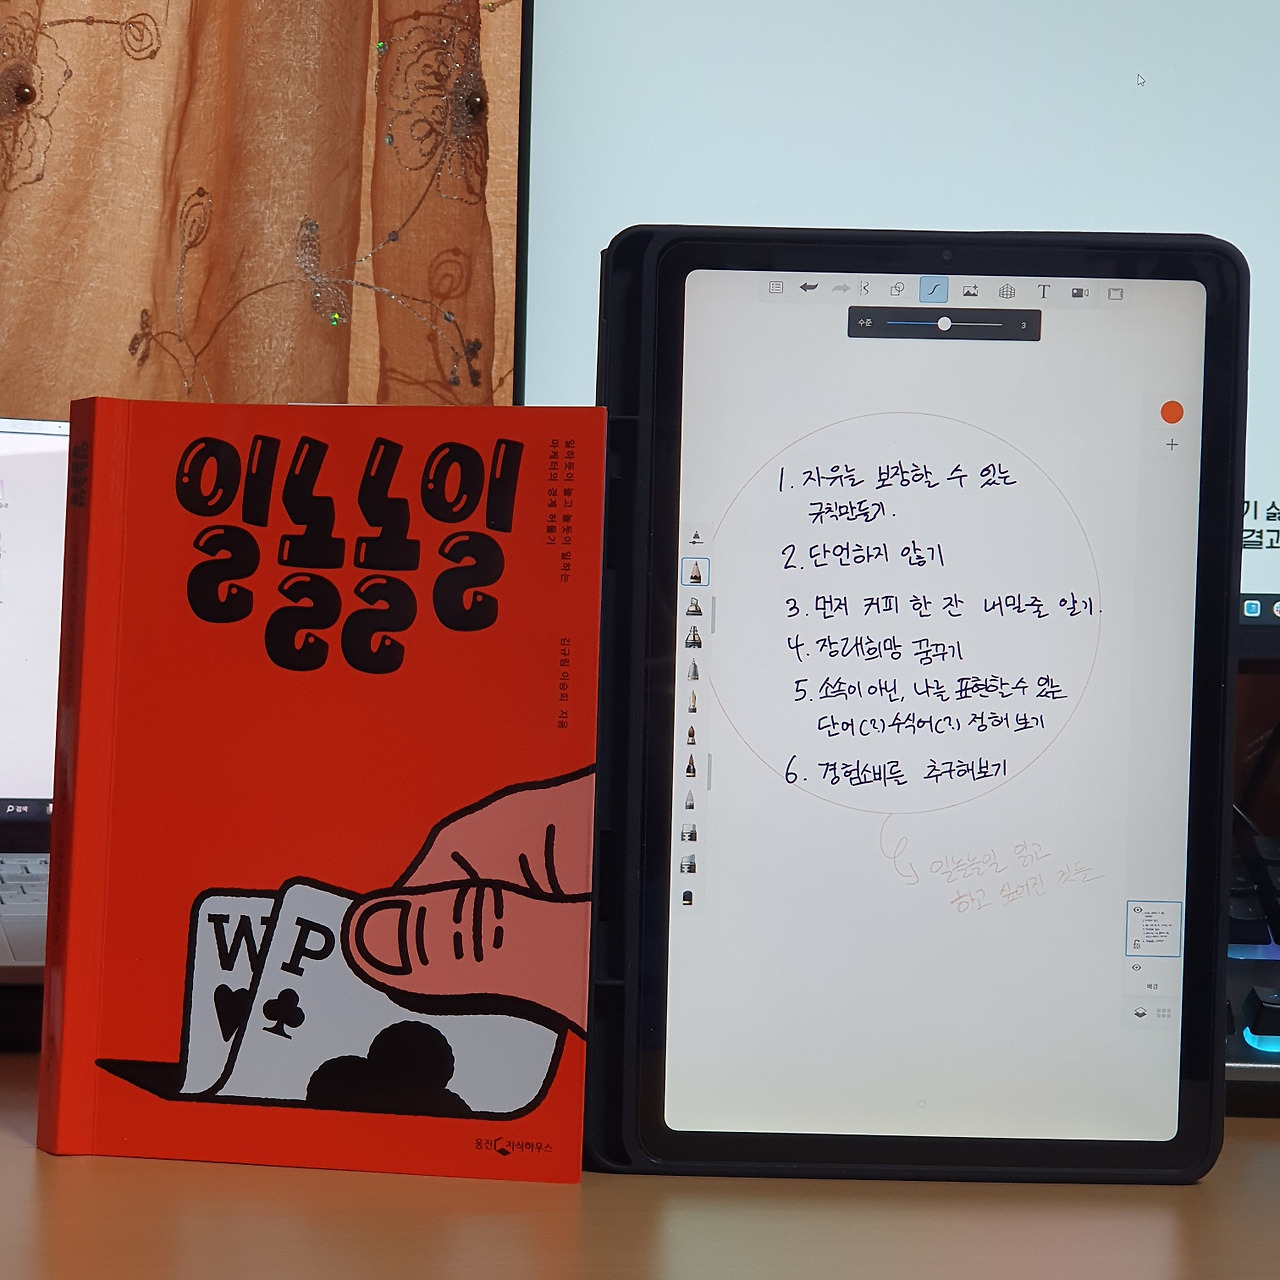 일놀놀일
일하듯이 놀고 놀듯이 일하는
마케터의 경계 허물기
김규림 이승희 지음
W P
웅진 지식하우스
수준 3
1. 자유를 보장할 수 있는
규칙만들기.
2. 단언하지 않기
3. 먼저 커피 한 잔 내밀줄 알기.
4. 장래희망 꿈꾸기
5. 소속이 아닌, 나를 표현할 수 있는
단어(?) 수식어(?) 정해 보기
6. 경험소비를 추구해보기
일놀놀일 읽고
하고 싶어진 것들
배경
검색
기 삶
결과